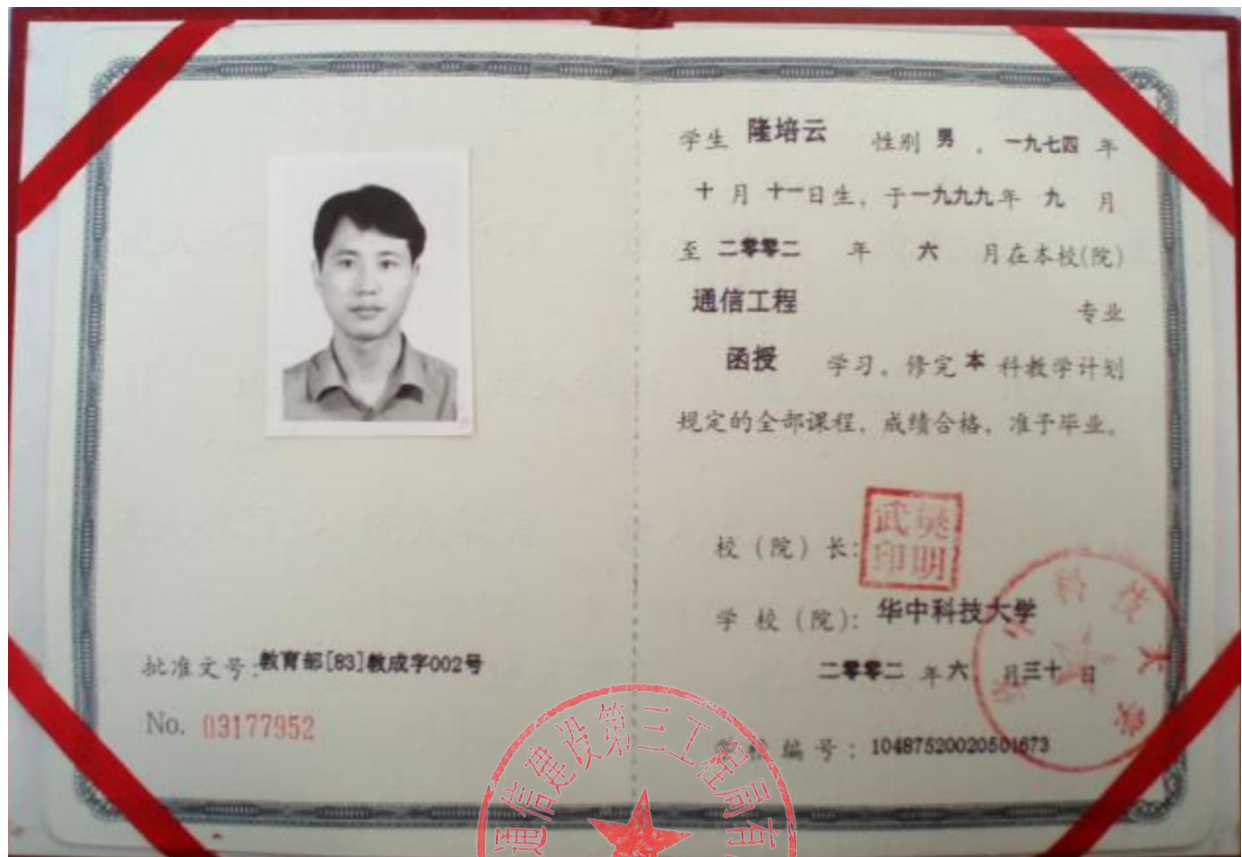 学生 隆培云 性别 男 ，一九七四 年
十 月 十一日生，于一九九九年 九 月
至 二零零二 年 六 月在本校(院)
通信工程 专业
函授 学习，修完 本 科教学计划
规定的全部课程，成绩合格，准予毕业。
校（院）长：
武樊
印明
学 校（院）： 华中科技大学
二零零二 年 六 月三十 日
学校 编 号：10487520020501673
批准文号：教育部[83]教成字002号
No. 03177952
科技大
通信建设第三工程局有